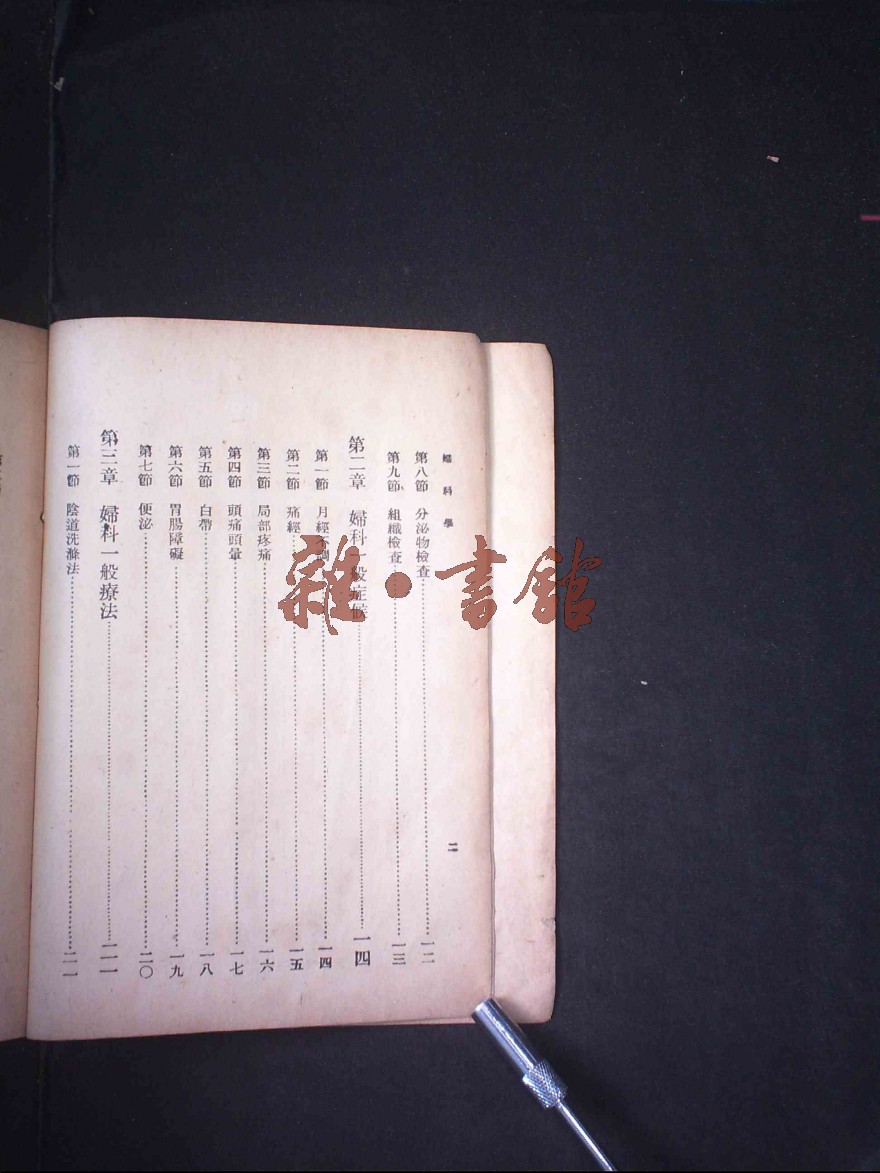 婦科學
二
第八節 分泌物檢查 一二
第九節 組織檢查 一三
第二章 婦科一般症候 一四
第一節 月經不調 一四
第二節 痛經 一五
第三節 局部疼痛 一六
第四節 頭痛頭暈 一七
第五節 白帶 一八
第六節 胃腸障礙 一九
第七節 便泌 二〇
第三章 婦科一般療法 二一
第一節 陰道洗滌法 二一
雜·書館